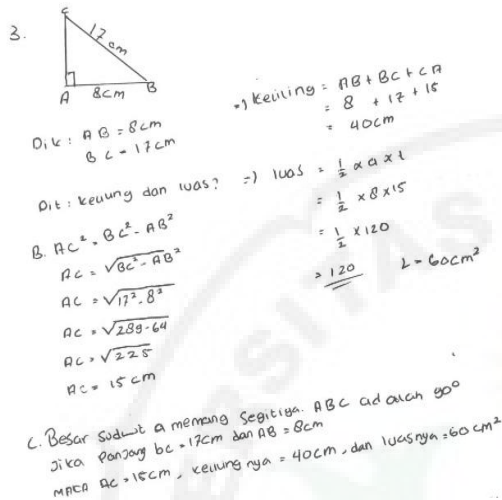 3.
C
17 cm
A 8cm B
Dik : AB = 8cm
BC = 17cm
Dit : keliling dan luas?
B. AC² = BC² - AB²
AC = √BC² - AB²
AC = √17² - 8²
AC = √289 - 64
AC = √225
AC = 15 cm
=) keliling = AB + BC + CA
= 8 + 17 + 15
= 40cm
=) luas = 1/2 x a x t
= 1/2 x 8 x 15
= 1/2 x 120
= 120 L = 60cm²
C. Besar sudut A memang segitiga. ABC adalah 90°
Jika panjang bc = 17cm dan AB = 8cm
MAKA AC = 15cm, keliling nya = 40cm, dan luasnya = 60cm²
ERSITAS